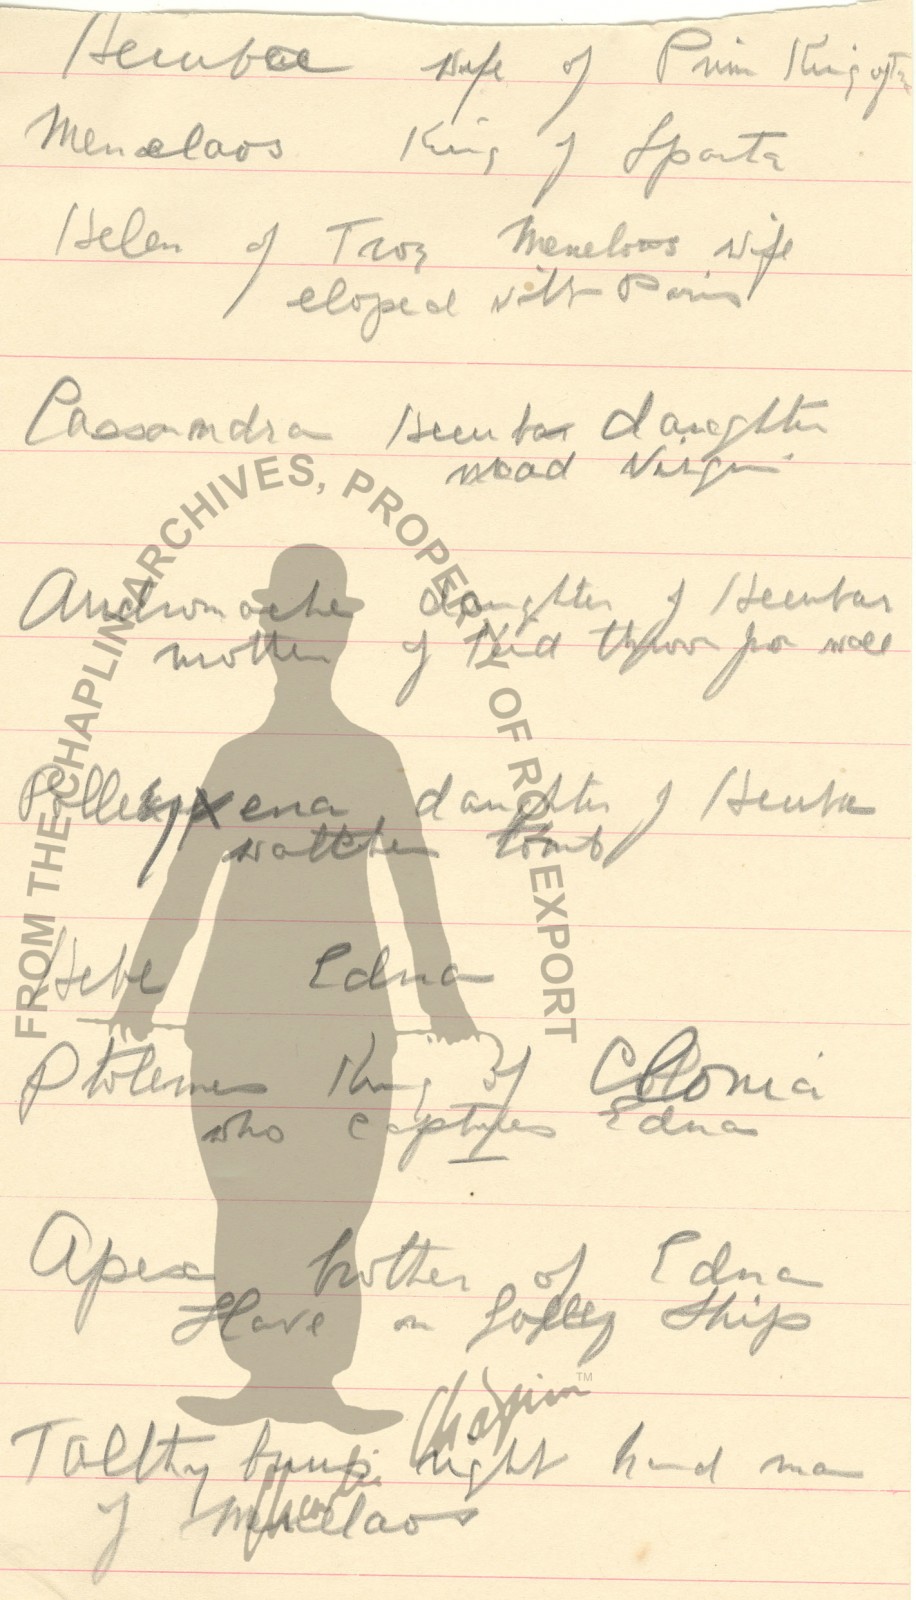 Hecubae wife of Prim King of Tr
Menelaos King of Sparta
Helen of Troy Menelaos wife
eloped with Paris
Cassandra Hecubar daughter
mad Virgin
Andromache daughter of Hecubar
mother of Kid thrown from wall
Polleyxena daughter of Hecuba
watches tomb
Hebe Edna
Ptolemes King of Colonia
who captures Edna
Apex brother of Edna
Slave on Galley Ship
right hand man
of Menelaos
FROM THE CHAPLIN ARCHIVES, PROPERTY OF ROY EXPORT
Chaplin TM